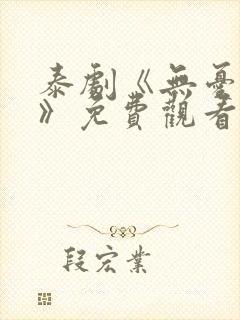 泰劇《無憂
》免費觀看
段宏業